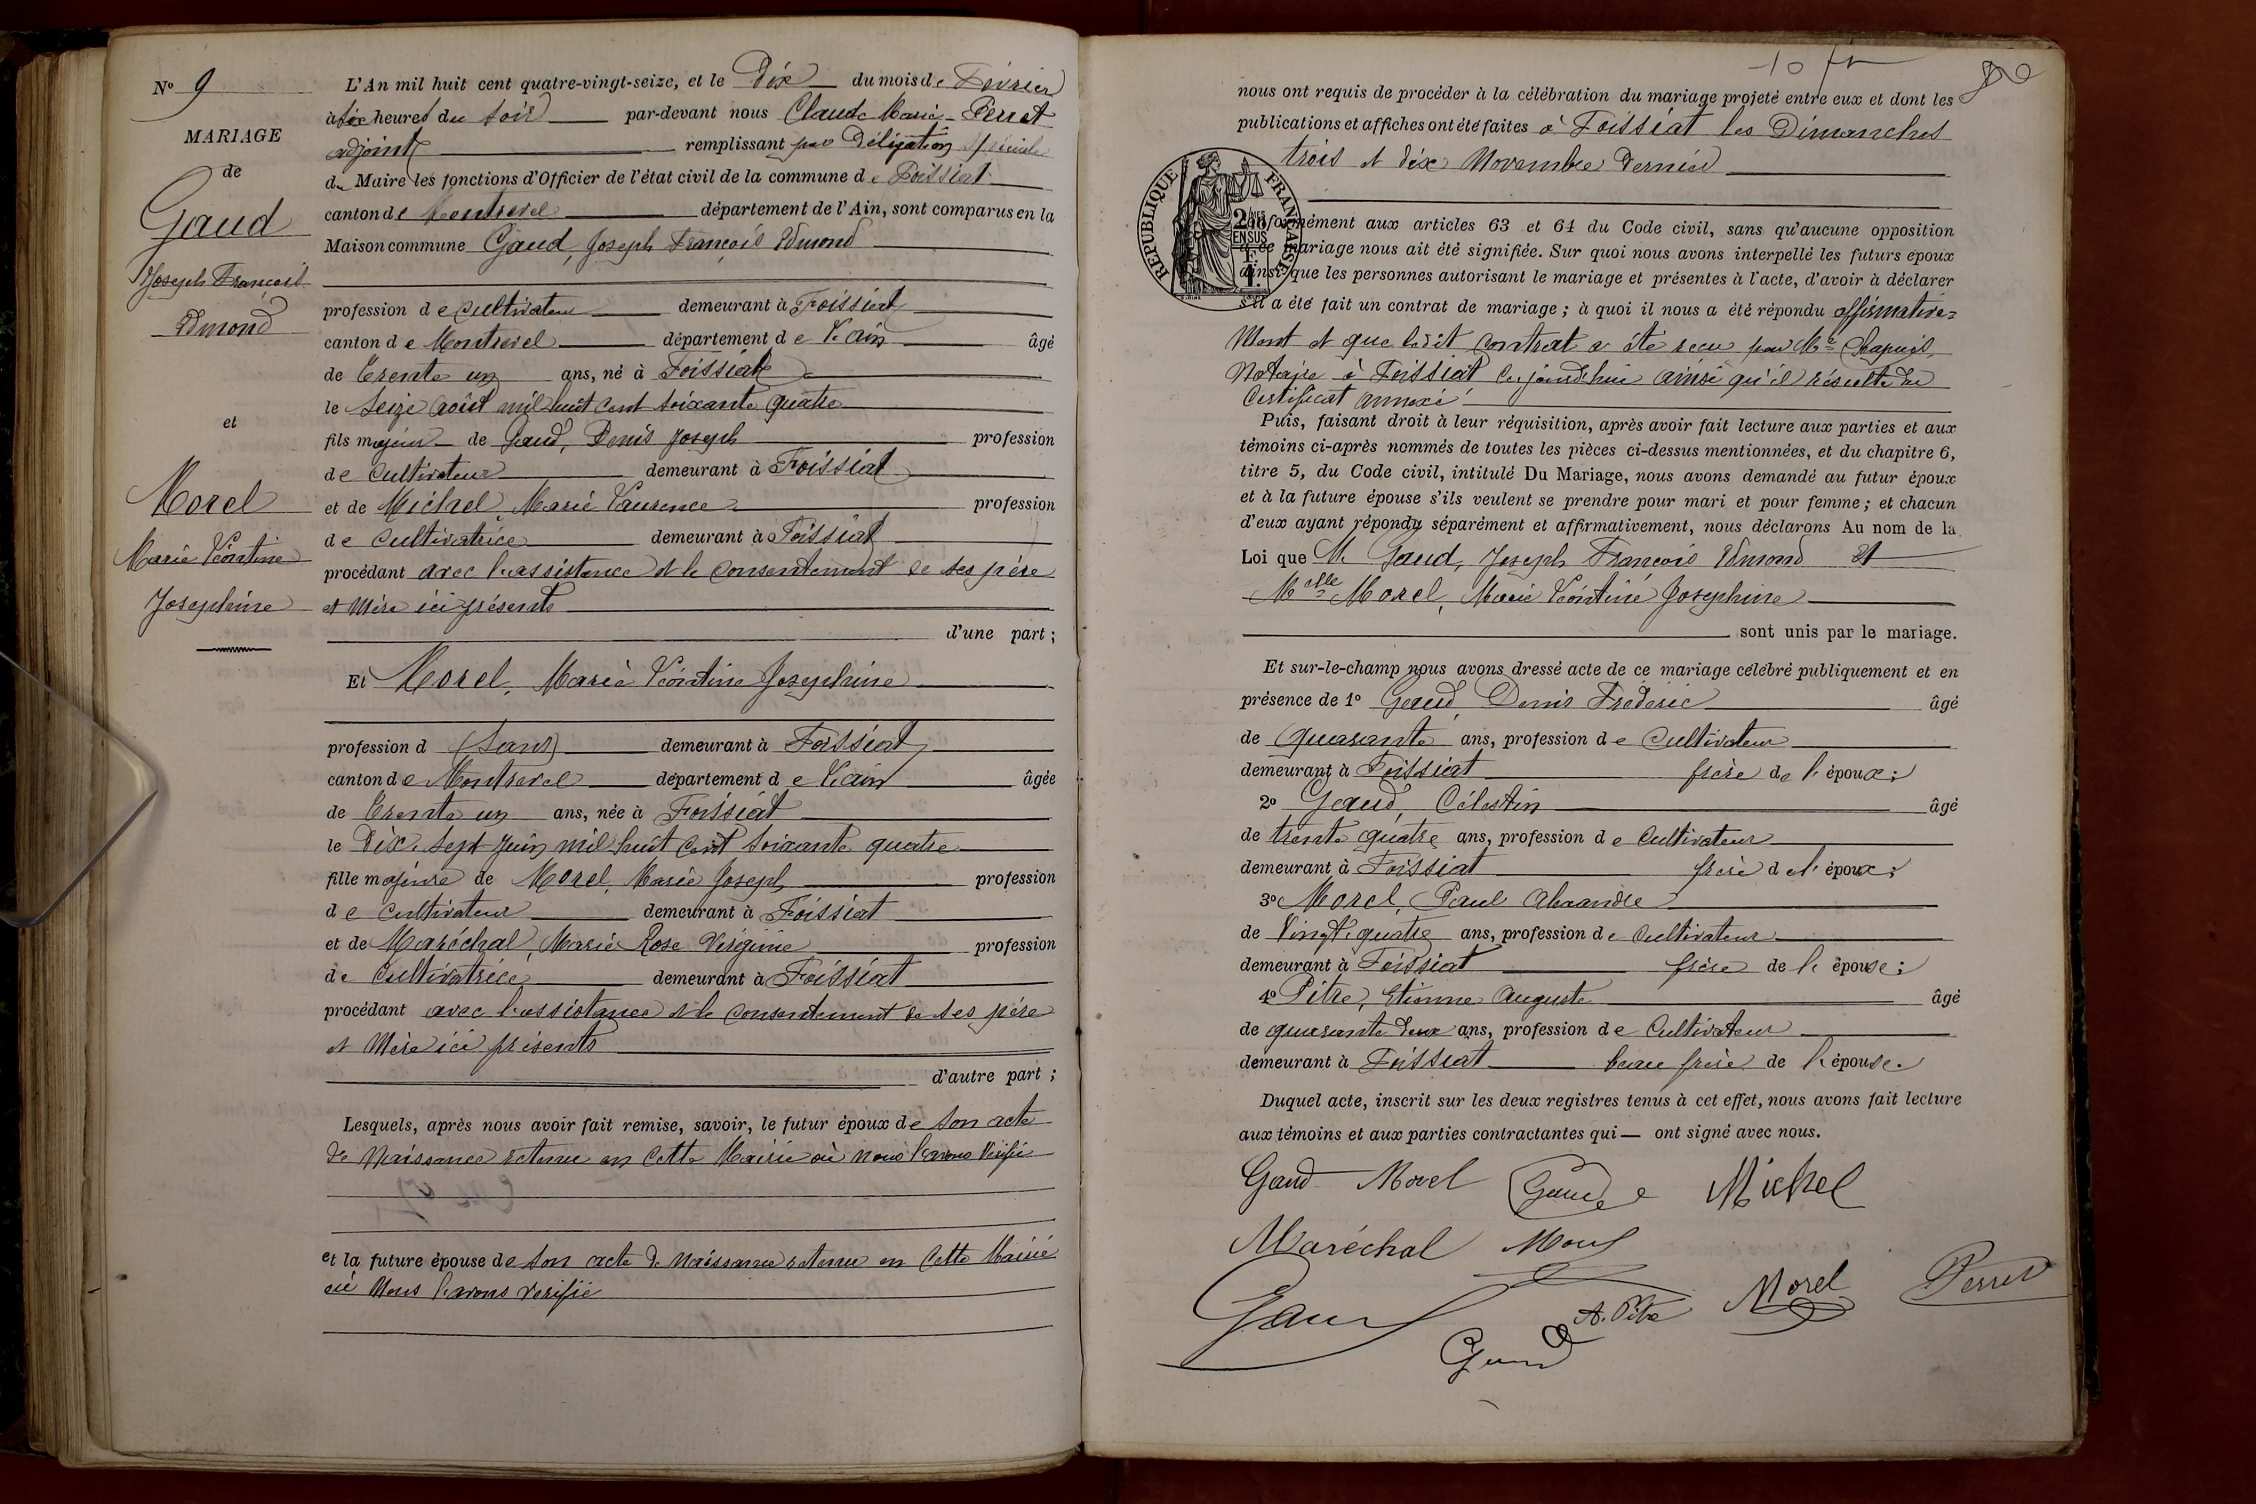 N° 9
MARIAGE
de
Gaud
Joseph François
Edmond
et
Morel
Marie Léontine
Josephine
L'An mil huit cent quatre-vingt-seize, et le Dix du mois de Février
à six heures du soir par-devant nous Claude Marie Perret
adjoint remplissant par Délégation spéciale
du Maire les fonctions d'Officier de l'état civil de la commune de Foissiat
canton de Montrevel département de l'Ain, sont comparus en la
Maison commune Gaud, Joseph François Edmond
profession de cultivateur demeurant à Foissiat
canton de Montrevel département de l'ain âgé
de trente un ans, né à Foissiat
le seize août mil huit cent soixante quatre
fils majeur de Gaud, Denis Joseph profession
de cultivateur demeurant à Foissiat
et de Michel Marie Laurence profession
de cultivatrice demeurant à Foissiat
procédant avec l'assistance et le consentement de ses père
et mère ici présents
d'une part ;
Et Morel, Marie Léontine Josephine
profession d (sans) demeurant à Foissiat
canton de Montrevel département de l'ain âgée
de trente un ans, née à Foissiat
le Dix-sept Juin mil huit cent soixante quatre
fille majeure de Morel, Marie Joseph profession
de cultivateur demeurant à Foissiat
et de Maréchal, Marie Rose Virginie profession
de cultivatrice demeurant à Foissiat
procédant avec l'assistance et le consentement de ses père
et mère ici présents
d'autre part ;
Lesquels, après nous avoir fait remise, savoir, le futur époux de son acte
de Naissance retenu en cette Mairie où nous l'avons vérifié
et la future épouse de son acte de Naissance retenu en cette Mairie
où Nous l'avons vérifié
nous ont requis de procéder à la célébration du mariage projeté entre eux et dont les
publications et affiches ont été faites à Foissiat les Dimanches
trois et dix Novembre Dernier
RÉPUBLIQUE FRANÇAISE
2 /10MES
EN SUS
conformément aux articles 63 et 64 du Code civil, sans qu'aucune opposition
à ce mariage nous ait été signifiée. Sur quoi nous avons interpellé les futurs époux
ainsi que les personnes autorisant le mariage et présentes à l'acte, d'avoir à déclarer
s'il a été fait un contrat de mariage ; à quoi il nous a été répondu affirmative=
ment et que ledit contrat a été reçu par Me Chapuis,
Notaire à Foissiat ce jourd'hui ainsi qu'il résulte du
Certificat annexé
Puis, faisant droit à leur réquisition, après avoir fait lecture aux parties et aux
témoins ci-après nommés de toutes les pièces ci-dessus mentionnées, et du chapitre 6,
titre 5, du Code civil, intitulé Du Mariage, nous avons demandé au futur époux
et à la future épouse s'ils veulent se prendre pour mari et pour femme ; et chacun
d'eux ayant répondu séparément et affirmativement, nous déclarons Au nom de la
Loi que M. Gaud, Joseph François Edmond Et
Melle Morel, Marie Léontine Josephine
sont unis par le mariage.
Et sur-le-champ nous avons dressé acte de ce mariage célébré publiquement et en
présence de 1° Gaud Denis Frédéric âgé
de quarante ans, profession de cultivateur
demeurant à Foissiat frère de l'époux ;
2° Gaud, Célestin âgé
de trente quatre ans, profession de cultivateur
demeurant à Foissiat frère de l'époux ;
3° Morel, Paul Alexandre
de Vingt-quatre ans, profession de cultivateur
demeurant à Foissiat frère de l'épouse ;
4° Pitre, Etienne Auguste âgé
de quarante deux ans, profession de cultivateur
demeurant à Foissiat beau frère de l'épouse.
Duquel acte, inscrit sur les deux registres tenus à cet effet, nous avons fait lecture
aux témoins et aux parties contractantes qui — ont signé avec nous.
Gaud Morel Gaud Michel
Maréchal Morel
Gaud A. Pitre Morel Perret
Gaud